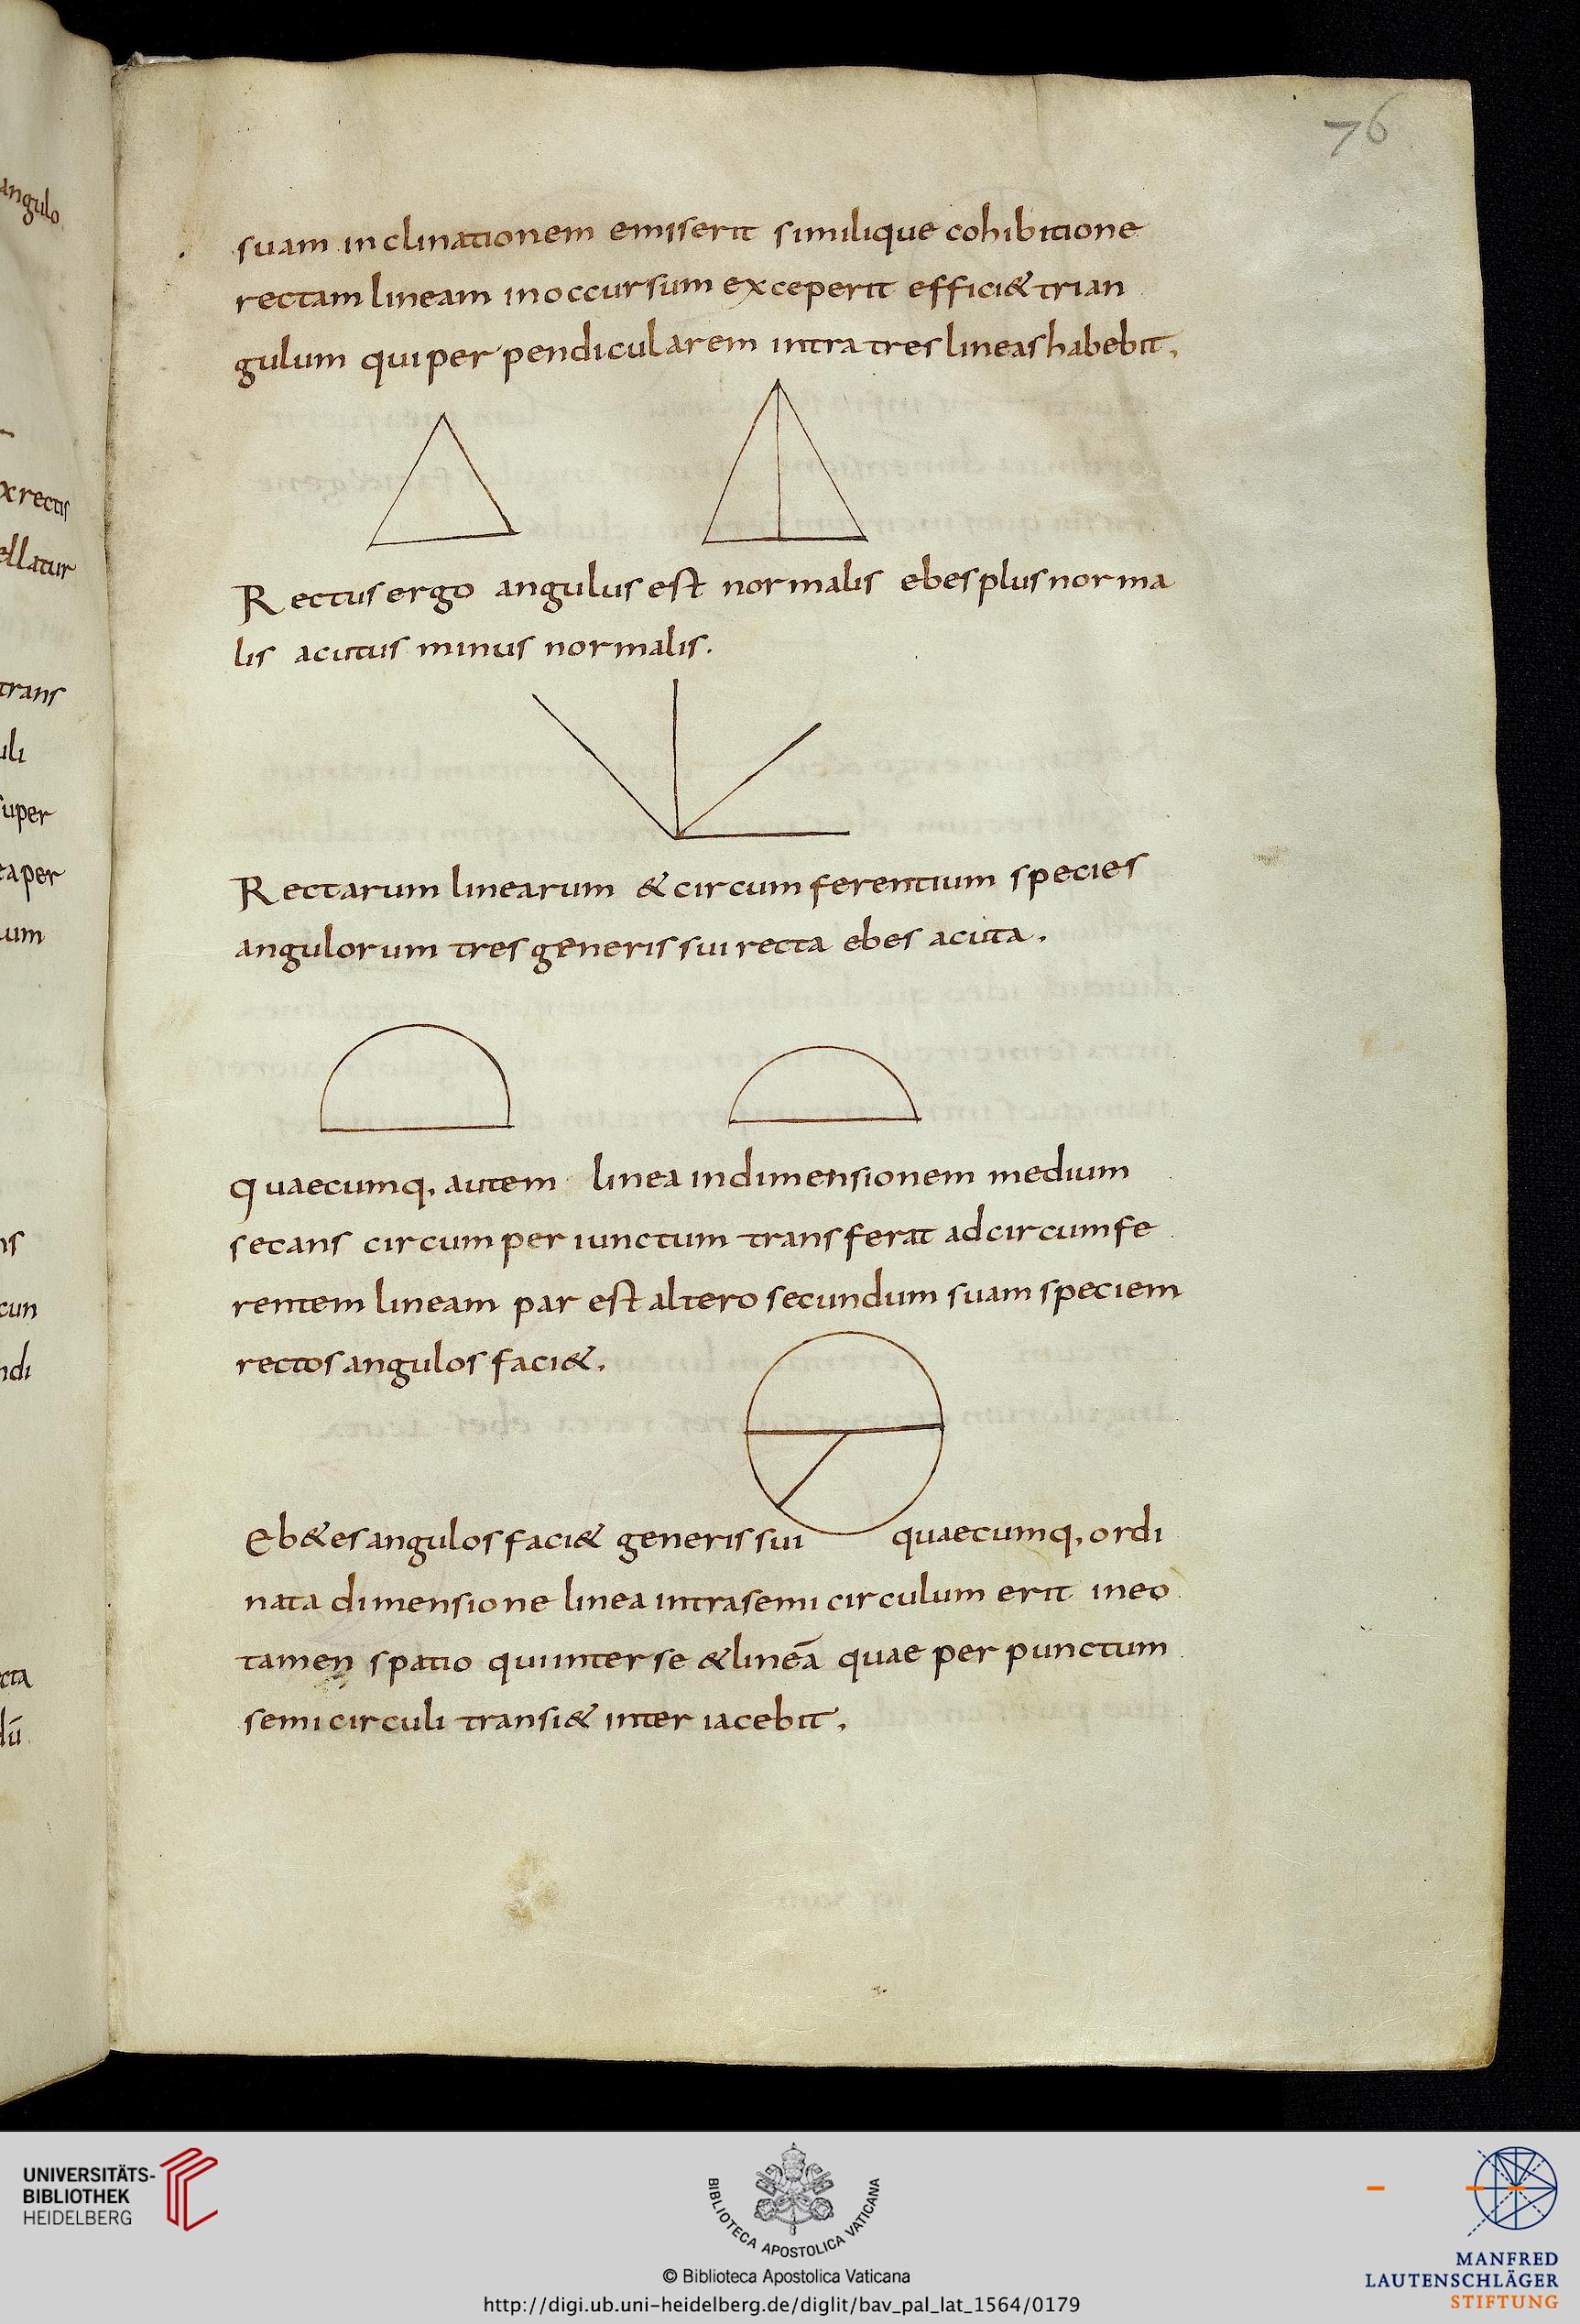 76
angulo
xrectis
ellatur
trans
uli
super
eaper
um
ns
cun
ndi
cta
dū
suam inclinationem emiserit similique cohibitione
rectam lineam inoccursum exceperit effici& trian
gulum quiper pendicularem intra treslineashabebit,
Rectusergo angulusest normalis ebesplusnorma
lis acutus minus normalis.
Rectarum linearum & circumferentium species
angulorum tresgenerissuirecta ebes acuta.
Quaecumq, autem linea indimensionem medium
secans circumperiunctum transferat adcircumfe
rentem lineam par est altero secundum suam speciem
rectosangulosfaci&.
Eb&esangulosfaci& generissui quaecumq, ordi
nata dimensione linea intrasemicirculum erit ineo
tamen spatio quiinterse &lineā quae per punctum
semicirculi transi& inter iacebit,
UNIVERSITÄTS-
BIBLIOTHEK
HEIDELBERG
BIBLIOTECA APOSTOLICA VATICANA
© Biblioteca Apostolica Vaticana
http://digi.ub.uni-heidelberg.de/diglit/bav_pal_lat_1564/0179
MANFRED
LAUTENSCHLÄGER
STIFTUNG